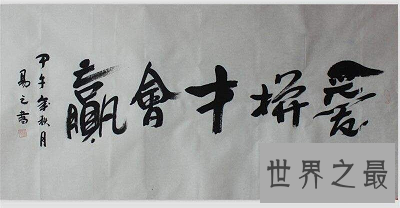 愛拼才會贏
甲午年秋月
易之書
世界之最